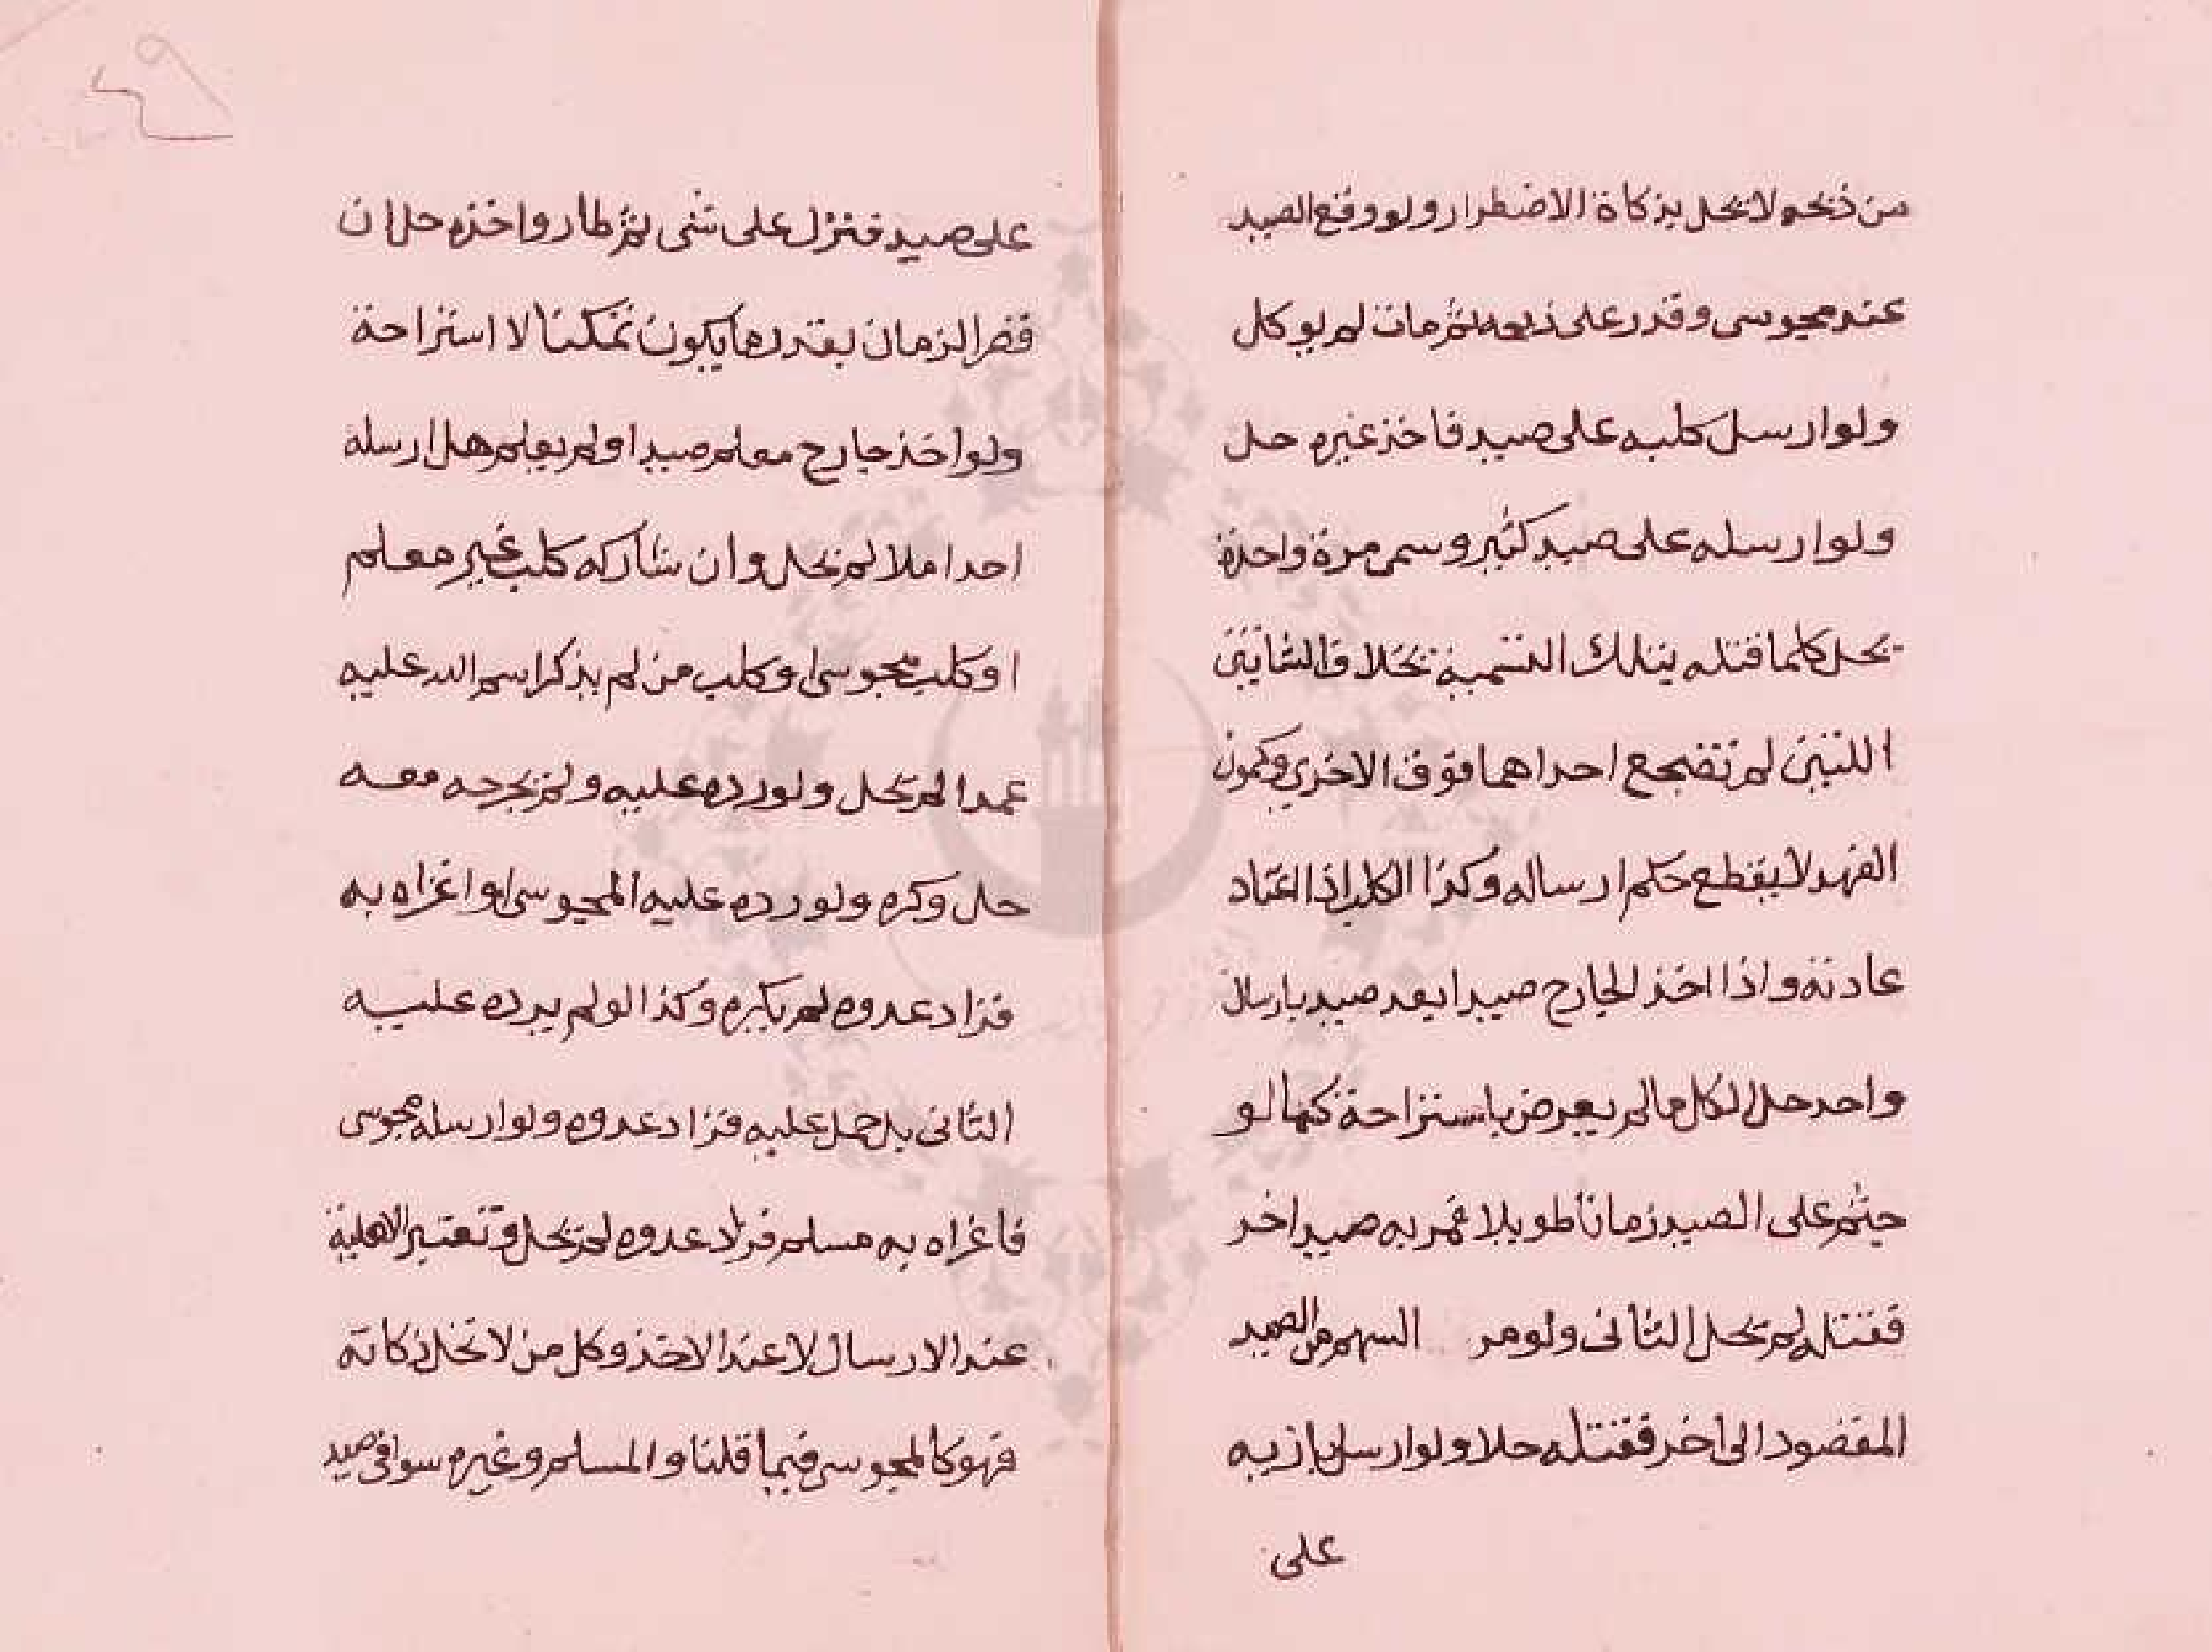 من ذبحه لا يحل بذكاة الاضطرار ولو وقع الصيد
عند مجوسى وقدر على ذبحه ثم مات لم يوكل
ولو ارسل كلبه على صيد فاخذ غيره حل
ولو ارسله على صيد كثير وسمى مرة واحدة
يحل كلما قتله بتلك التسمية بخلاف الشاتين
اللتين لم تضجع احداهما فوق الاخرى وكمون
الفهد لا يقطع حكم ارساله وكذا الكلب اذا اعتاد
عادته واذا اخذ الجارح صيدا بعد صيد بارسال
واحد حل الكل مالم يعرض باستراحة كما لو
جثم على الصيد زمانا طويلا فمر به صيد اخر
فقتله لم يحل الثانى ولو مر السهم من الصيد
المقصود الى اخر فقتله حلا ولو ارسل بازيه
على
على صيد فنزل على شى ثم طار واخذه حل ان
قصر الزمان بقدر ما يكون تمكنا لا استراحة
ولو اخذ جارح معلم صيدا ولم يعلم هل ارسله
احد ام لا لم يحل وان شاركه كلب غير معلم
او كلب مجوسى او كلب من لم يذكر اسم الله عليه
عمدا لم يحل ولو رده عليه ولم يجرحه معه
حل وكره ولو رده عليه المجوسى او اغراه به
فزاد عدوه لم يكره وكذا لو لم يرده عليه
الثانى بل حمل عليه فزاد عدوه ولو ارسله مجوسى
فاغراه به مسلم فزاد عدوه لم يحل وتعتبر الاهلية
عند الارسال لا عند الاخذ وكل من لا تحل ذكاته
فهو كالمجوسى فيما قلنا والمسلم وغيره سوا فى صيد